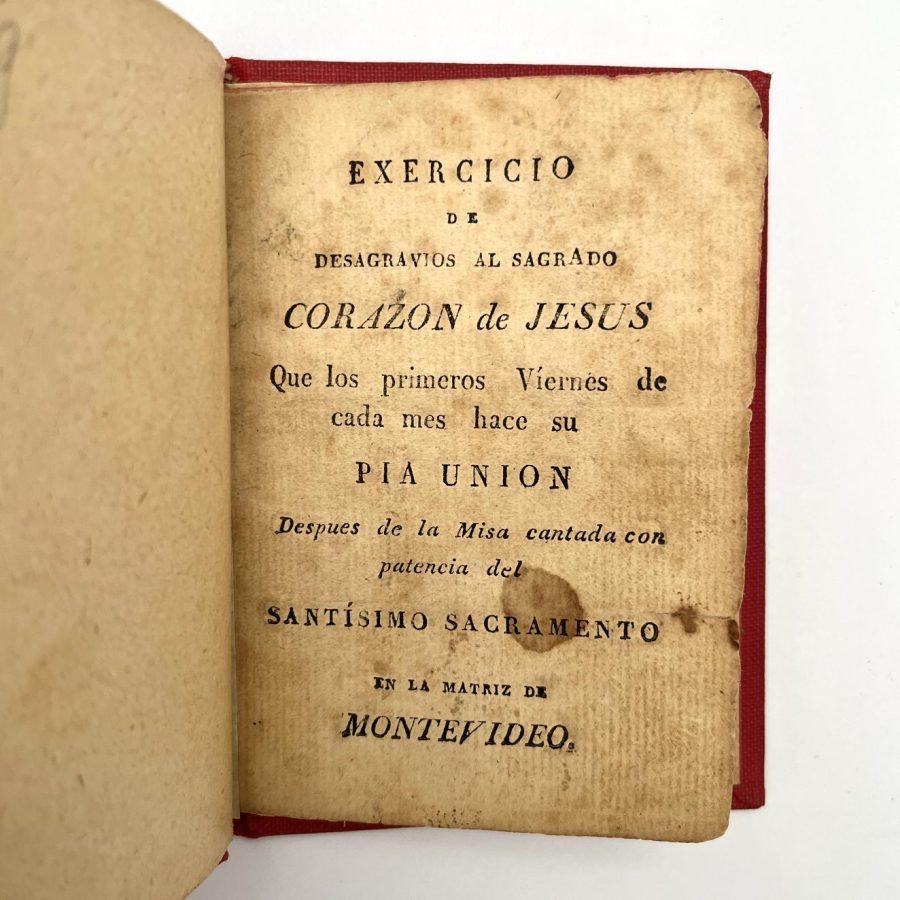 EXERCICIO
DE
DESAGRAVIOS AL SAGRADO
CORAZON de JESUS
Que los primeros Víernes de
cada mes hace su
PIA UNION
Despues de la Misa cantada con
patencia del
SANTÍSIMO SACRAMENTO
EN LA MATRIZ DE
MONTEVIDEO.